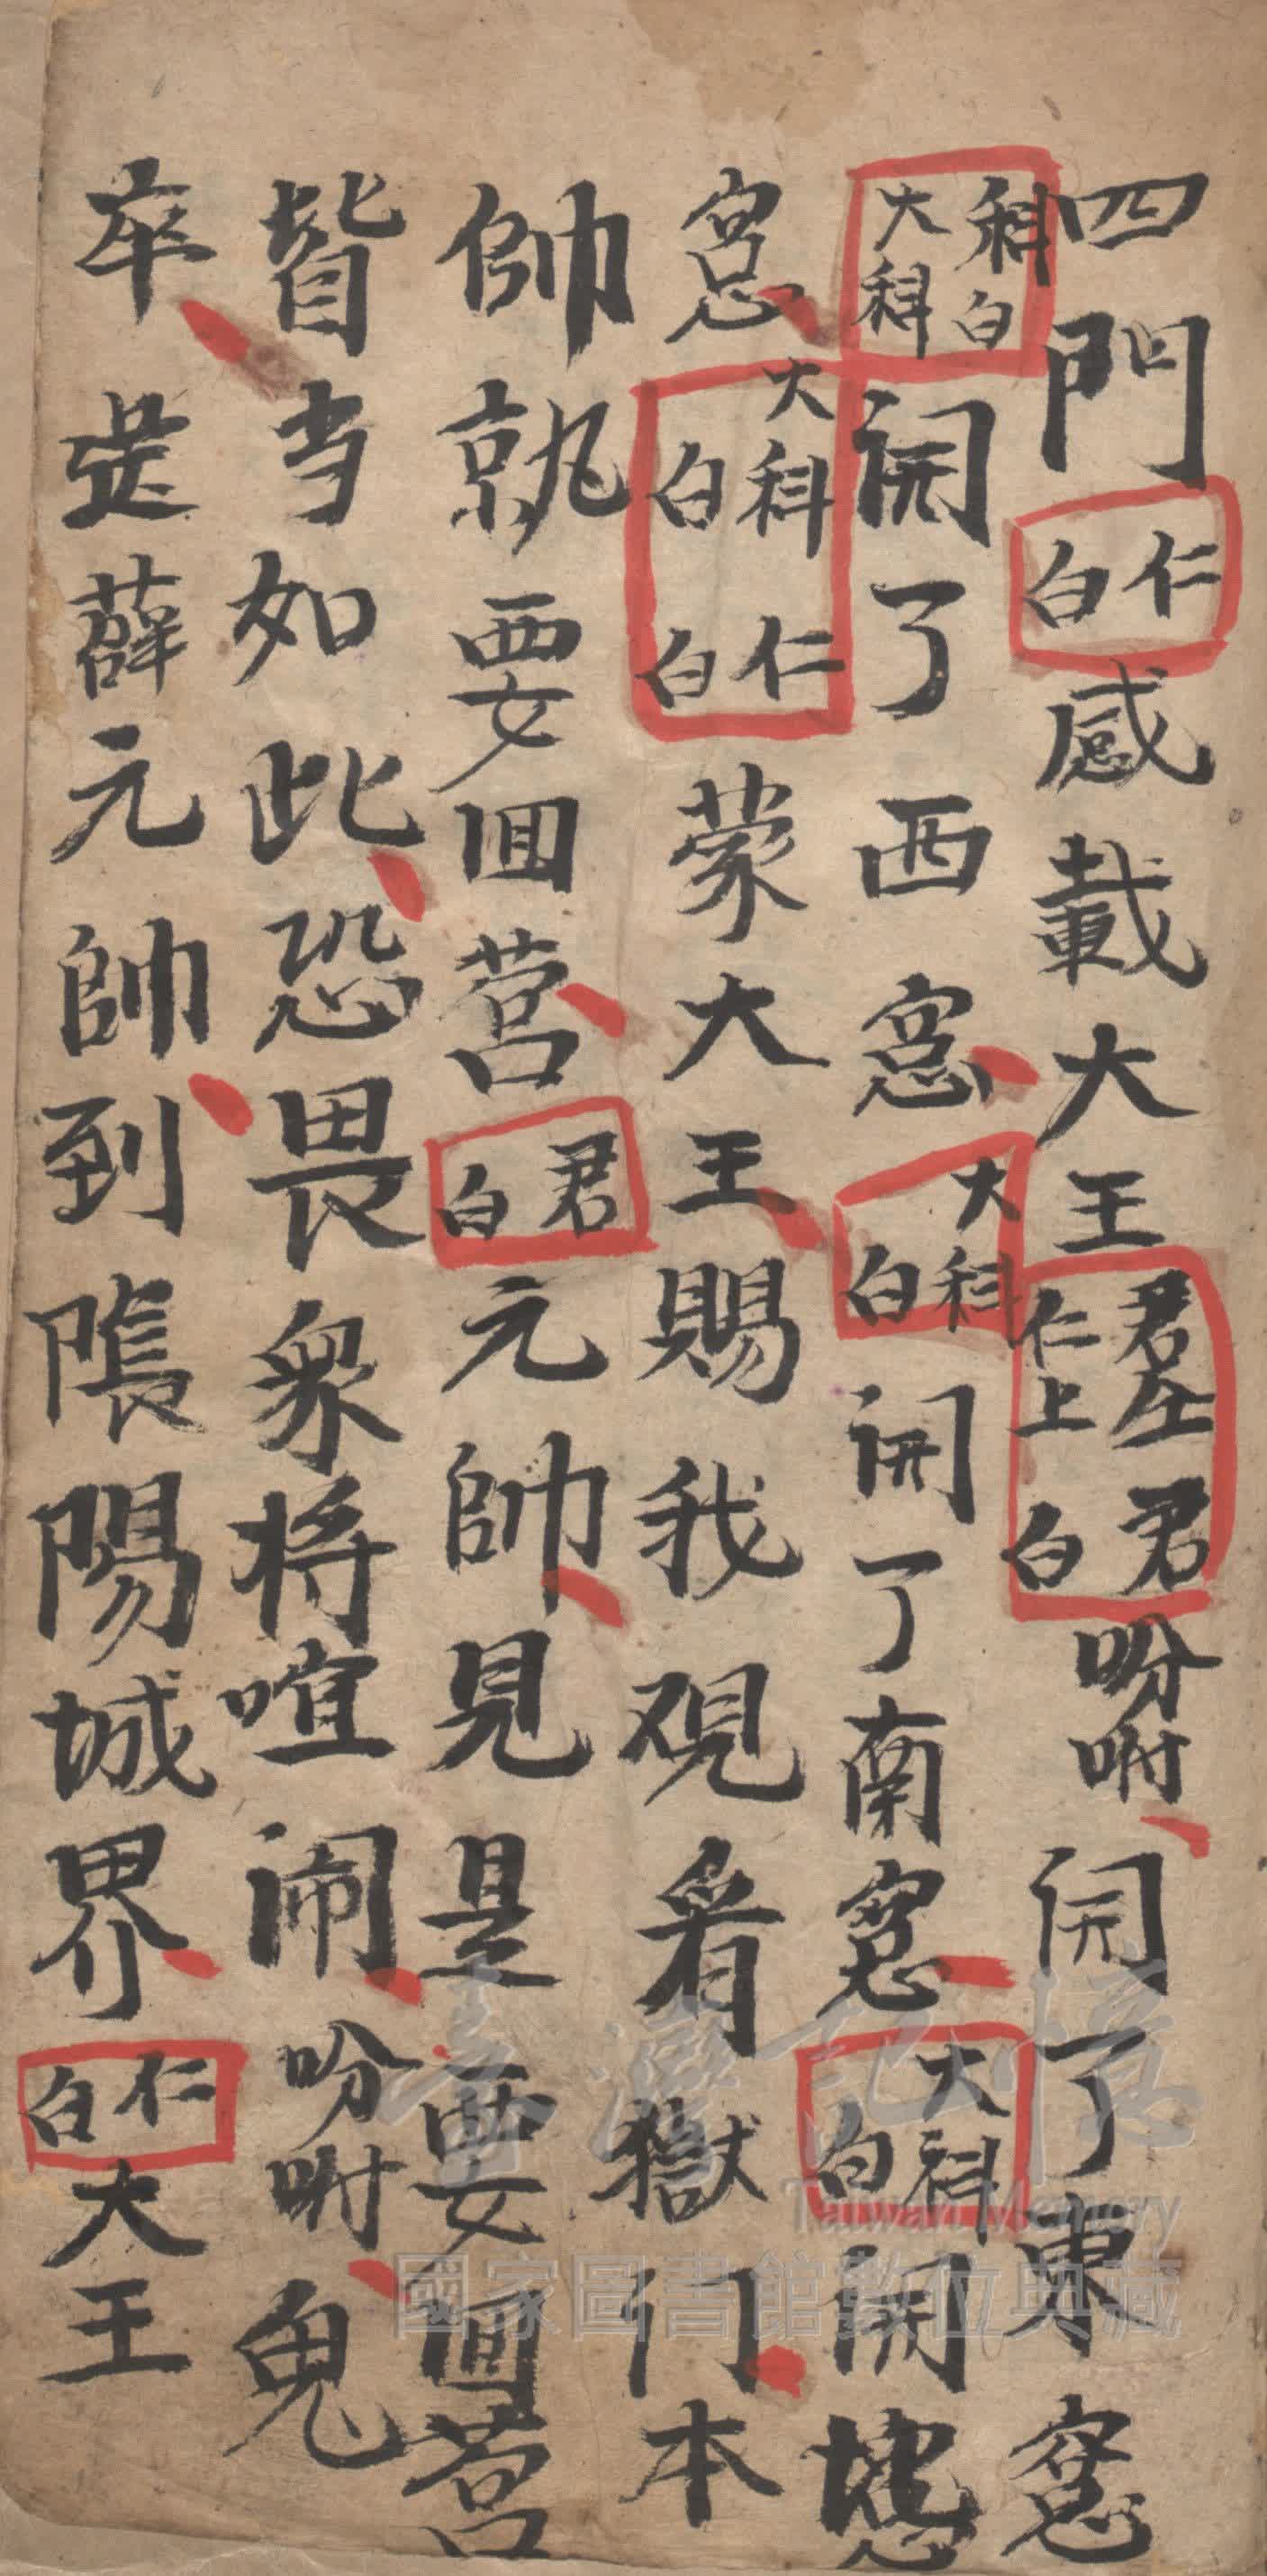 四門仁白感載大王君坐仁上君白吩咐開了東窓
科白大科開了西窓大科白開了南窓大科白開
窓大科白仁白蒙大王賜我观看獄门本
帥就要回营君白元帥見是要回营
皆当如此恐畏眾将喧闹吩咐鬼
卒送薛元帥到陽城界仁白大王
臺灣記憶
Taiwan Memory
國家圖書館數位典藏